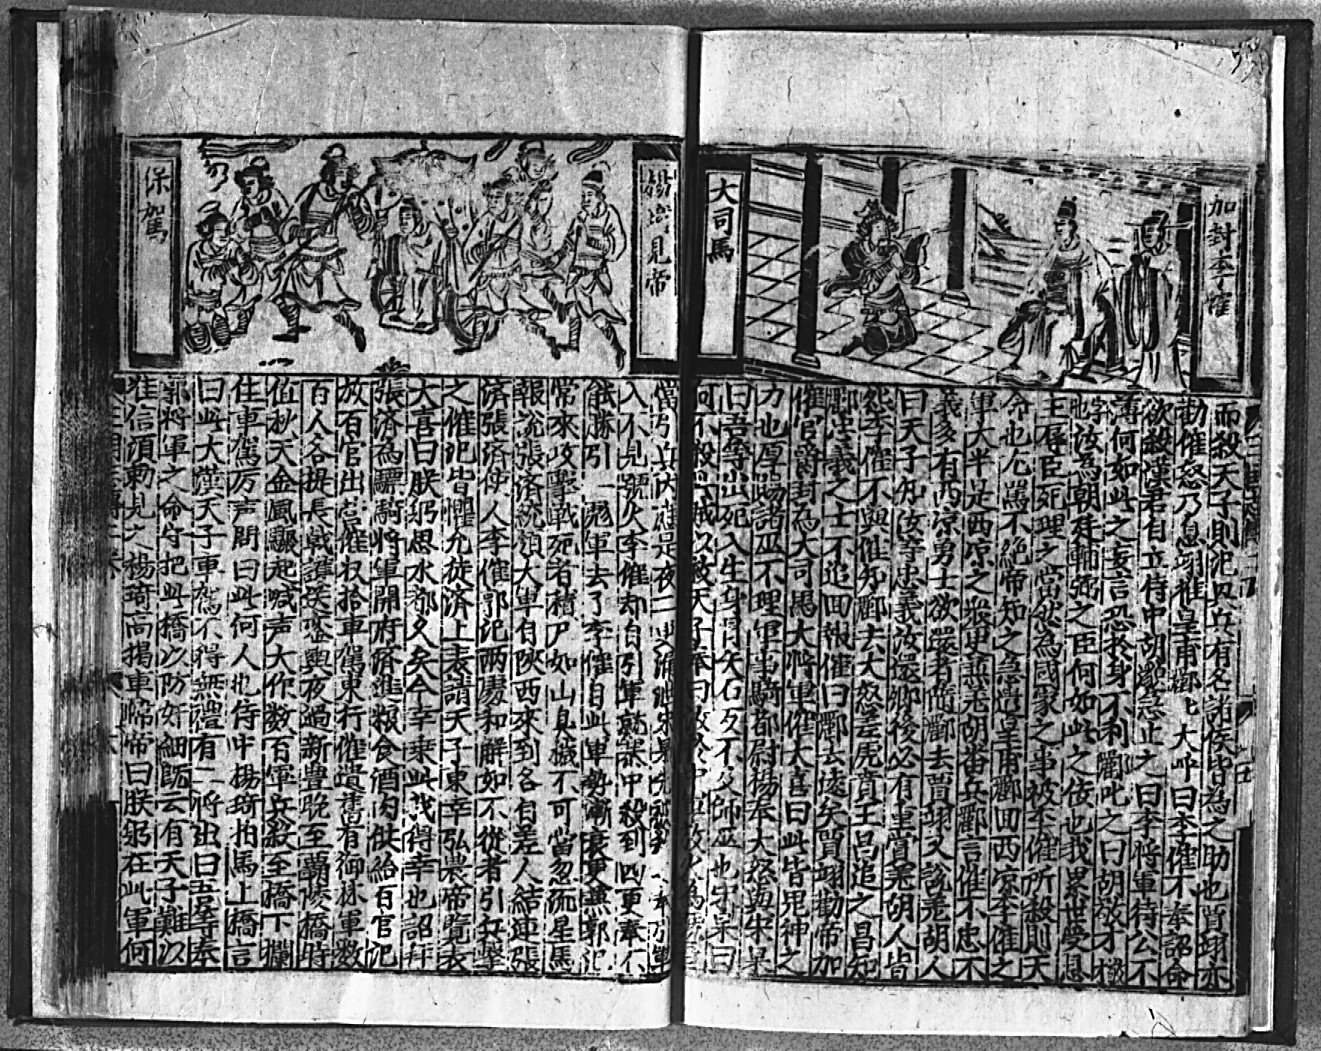 加封李傕
大司馬
而殺天子則犯與兵有名諸侯皆為之助也賈翊亦
勸傕怒乃息翊推皇甫酈北大呼曰李傕不奉詔命
欲殺漢君自立侍中胡邈急止之曰李將軍待公不
薄何如此之妄言恐於身不利酈叱之曰胡敬才
汝為朝廷輔弼之臣何如此之依也我累世受恩
主辱臣死理之當然為國家之事被李傕所殺則天
命也傕罵不絕帝知之急遣皇甫酈回西凉李傕之
軍大半是西凉之眾更兼羌胡番兵酈言傕不忠不
義多有西凉勇士放還者隨酈去賈翊又說羌胡人
曰天子知汝等忠義汝還鄉後必有重賞羌胡人皆
怨李傕不與傕知酈去大怒差虎賁王昌追之昌知
酈忠義之士不追回報傕曰酈去遠矣賈翊勸帝加
傕官爵封為大司馬大將軍傕大喜曰此皆鬼神之
力也厚賜諸巫不理軍事騎都尉楊奉大怒與宋果
曰吾等出死入生身冒矢石反不及師巫也宋果曰
何不殺此賊以救天子奉曰
楊琦見帝
保駕
當引兵內應是夜二更
入不見號火李傕却自引軍就寨中殺到四更奉不
能勝引一彪軍去了李傕自此軍勢漸衰更兼郭汜
常來攻擊戰死者積尸如山臭穢不可當忽流星馬
報說張濟統領大軍自陝西來到各自差人結連張
濟張濟使人李傕郭汜兩處和解如不從者引兵擊
之傕汜皆懼允從濟上表請天子東幸弘農帝覽表
大喜曰朕躬思水都久矣今幸乘此哉得幸也詔拜
張濟為驃騎將軍開府濟進粮食酒肉供給百官汜
放百官出營傕收拾車駕東行傕遣舊有御林軍數
百人各提長戟護送鑾輿夜過新豊晚至霸陵橋時
值秋天金風驟起喊声大作數百軍兵殺至橋下攔
住車駕厉声問曰此何人也侍中楊琦拍馬上橋言
曰此大漢天子車駕不得無禮有二將出曰吾等奉
郭將軍之命守把此橋以防奸細既云有天子難以
准信須動見六楊琦高揭車簾帝曰朕躬在此軍何